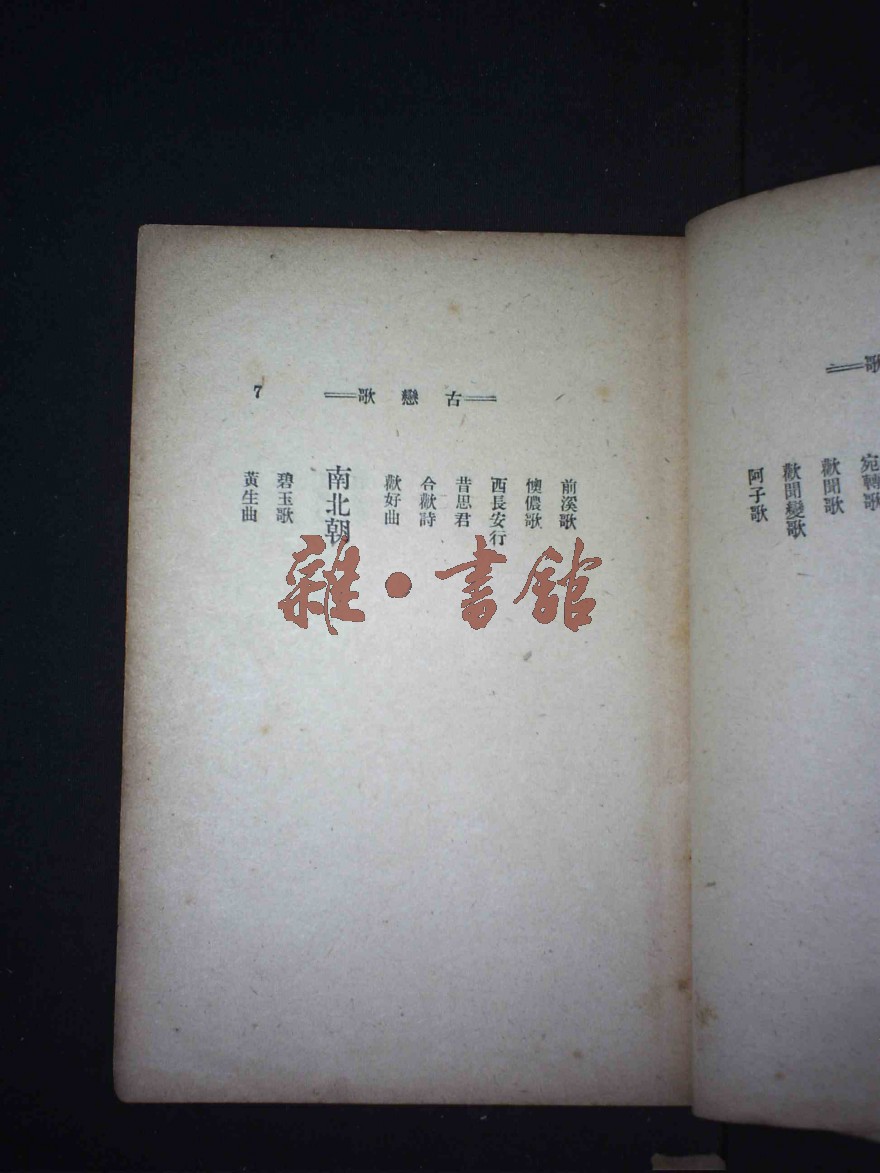 歌
宛轉歌
歡聞歌
歡聞變歌
阿子歌
古戀歌
7
前溪歌
懊儂歌
西長安行
昔思君
合歡詩
歡好曲
南北朝
碧玉歌
黃生曲
雜·書館